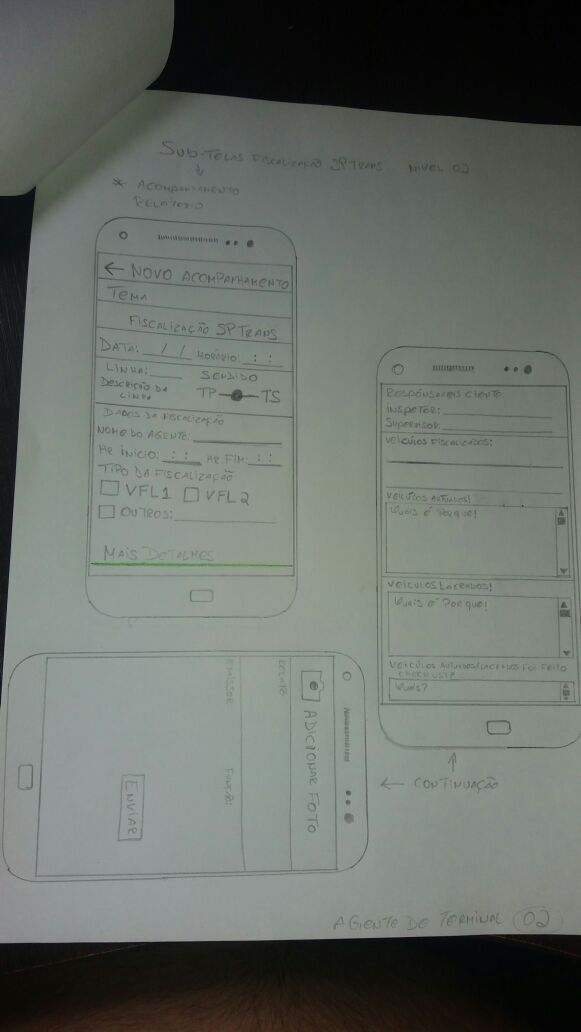 SUB-TELAS FISCALIZAÇÃO SPTRANS NIVEL 02
* ACOMPANHAMENTO
RELATÓRIO
← NOVO ACOMPANHAMENTO
TEMA
FISCALIZAÇÃO SPTRANS
DATA: __/__/__ HORÁRIO: : :
LINHA: ____ SENTIDO
DESCRIÇÃO DA LINHA TP TS
DADOS DA FISCALIZAÇÃO
NOME DO AGENTE: ________
HR INICIO: : : HR. FIM: : :
TIPO DA FISCALIZAÇÃO
VFL1 VFL2
OUTROS: ________
MAIS DETALHES
RESPONSAVEIS CLIENTE
INSPETOR: ________
SUPERVISOR: ________
VEICULOS FISCALIZADOS:
VEICULOS AUTUADOS!
QUAIS E PORQUE!
VEICULOS LACRADOS!
QUAIS E PORQUE!
VEICULOS AUTUADOS/LACRADOS FOI FEITO
CHECKLIST?
QUAIS?
← CONTINUAÇÃO
ADICIONAR FOTO
RELATO
EMISSOR FUNÇÃO:
ENVIAR
AGENTE DE TERMINAL 02